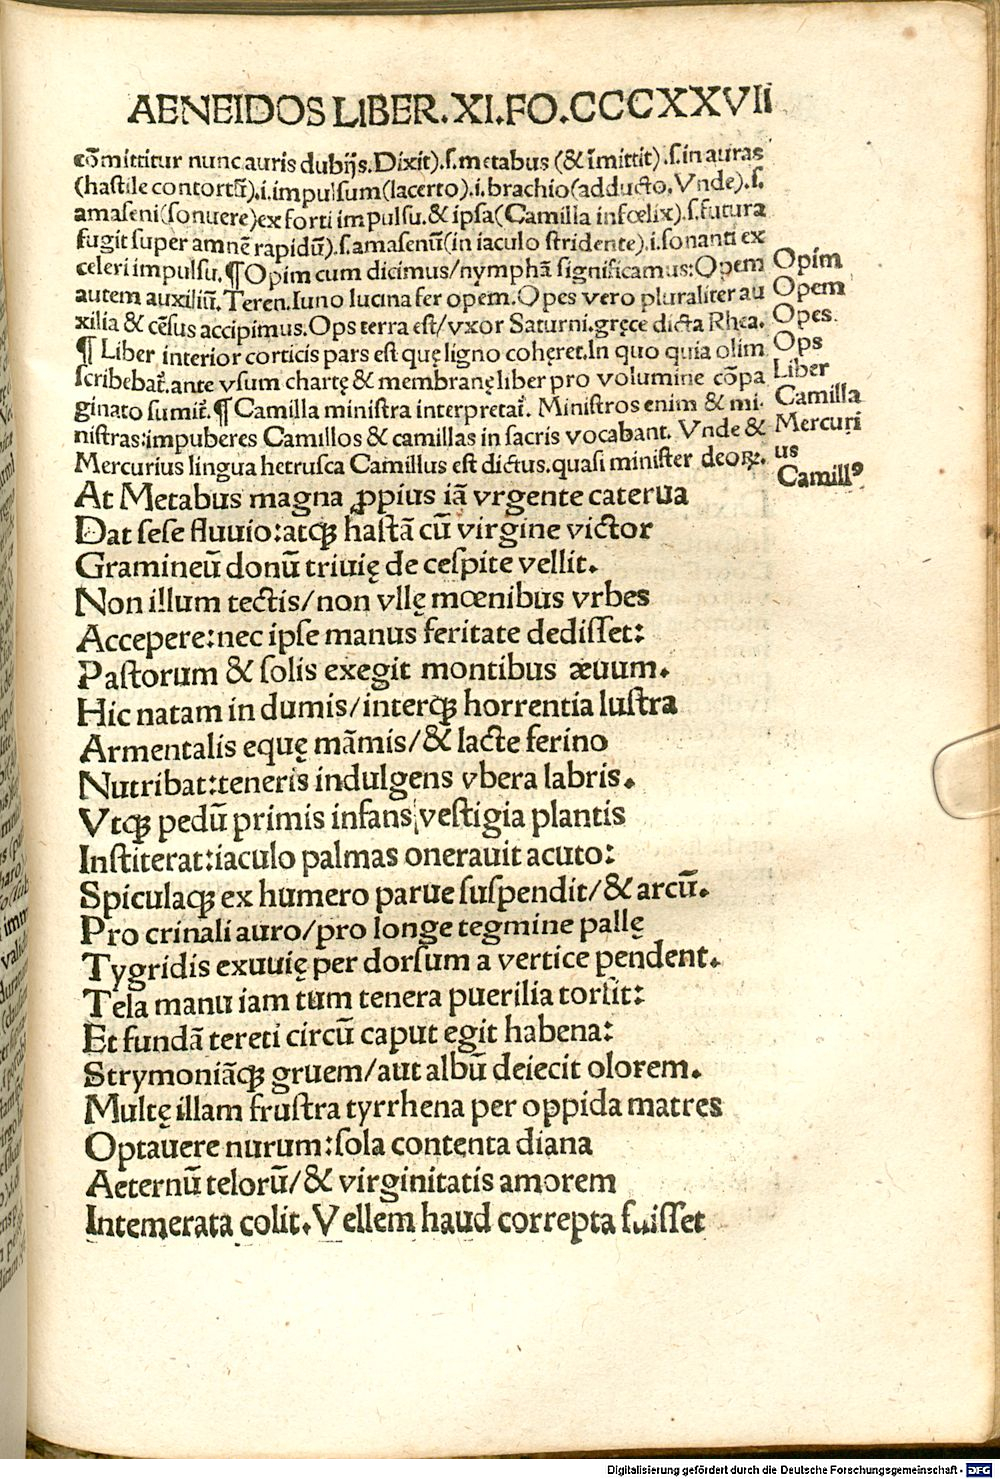 AENEIDOS LIBER.XI.FO.CCCXXVII
cõmittitur nunc auris dubijs.Dixit).ſ.metabus (& ĩmittit).ſ.in auras
(haſtile contortũ).i.impulſum(lacerto).i.brachio(adducto.Vnde).ſ.
amaſeni(ſonuere)ex forti impulſu.& ipſa(Camilla infœlix).ſ.futura
fugit ſuper amnẽ rapidũ).ſ.amaſenũ(in iaculo ſtridente).i.ſonanti ex
celeri impulſu.¶Opim cum dicimus/nymphã ſignificamus:Opem
autem auxiliũ.Teren.Iuno lucina fer opem.Opes vero pluraliter au
xilia & cẽſus accipimus.Ops terra eſt/vxor Saturni.gręce dicta Rhea.
¶ Liber interior corticis pars eſt quę ligno cohęret.In quo quia olim
ſcribebat̃.ante vſum chartę & membranę liber pro volumine cõpa
ginato ſumit̃.¶ Camilla miniſtra interpretat̃. Miniſtros enim & mi-
niſtras:impuberes Camillos & camillas in ſacris vocabant. Vnde &
Mercurius lingua hetruſca Camillus eſt dictus.quaſi miniſter deoꝝ.
Opim
Opem
Opes.
Ops
Liber
Camilla
Mercuri
us
Camillꝰ
At Metabus magna ꝓpius iã vrgente caterua
Dat ſeſe fluuio:atqꝫ haſtã cũ virgine victor
Gramineũ donũ triuię de ceſpite vellit.
Non illum tectis/non vllę mœnibus vrbes
Accepere:nec ipſe manus feritate dediſſet:
Paſtorum & ſolis exegit montibus æuum.
Hic natam in dumis/interqꝫ horrentia luſtra
Armentalis equę mãmis/& lacte ferino
Nutribat:teneris indulgens vbera labris.
Vtqꝫ pedũ primis infans veſtigia plantis
Inſtiterat:iaculo palmas onerauit acuto:
Spiculaqꝫ ex humero parue ſuſpendit/& arcũ.
Pro crinali auro/pro longe tegmine pallę
Tygridis exuuię per dorſum a vertice pendent.
Tela manu iam tum tenera puerilia torſit:
Et fundã tereti circũ caput egit habena:
Strymoniãqꝫ gruem/aut albũ deiecit olorem.
Multę illam fruſtra tyrrhena per oppida matres
Optauere nurum:ſola contenta diana
Aeternũ telorũ/& virginitatis amorem
Intemerata colit.Vellem haud correpta fuiſſet
Digitalisierung gefördert durch die Deutsche Forschungsgemeinschaft - DFG